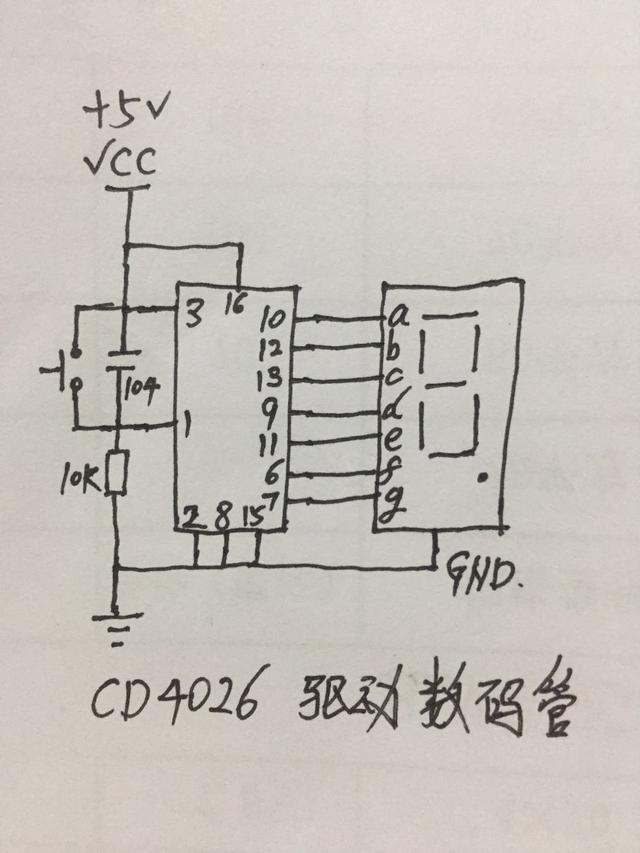 +5V
VCC
16
3
10 a
12 b
13 c
104
9 d
1
11 e
10K
6 f
7 g
2 8 15
GND.
CD4026 驱动数码管